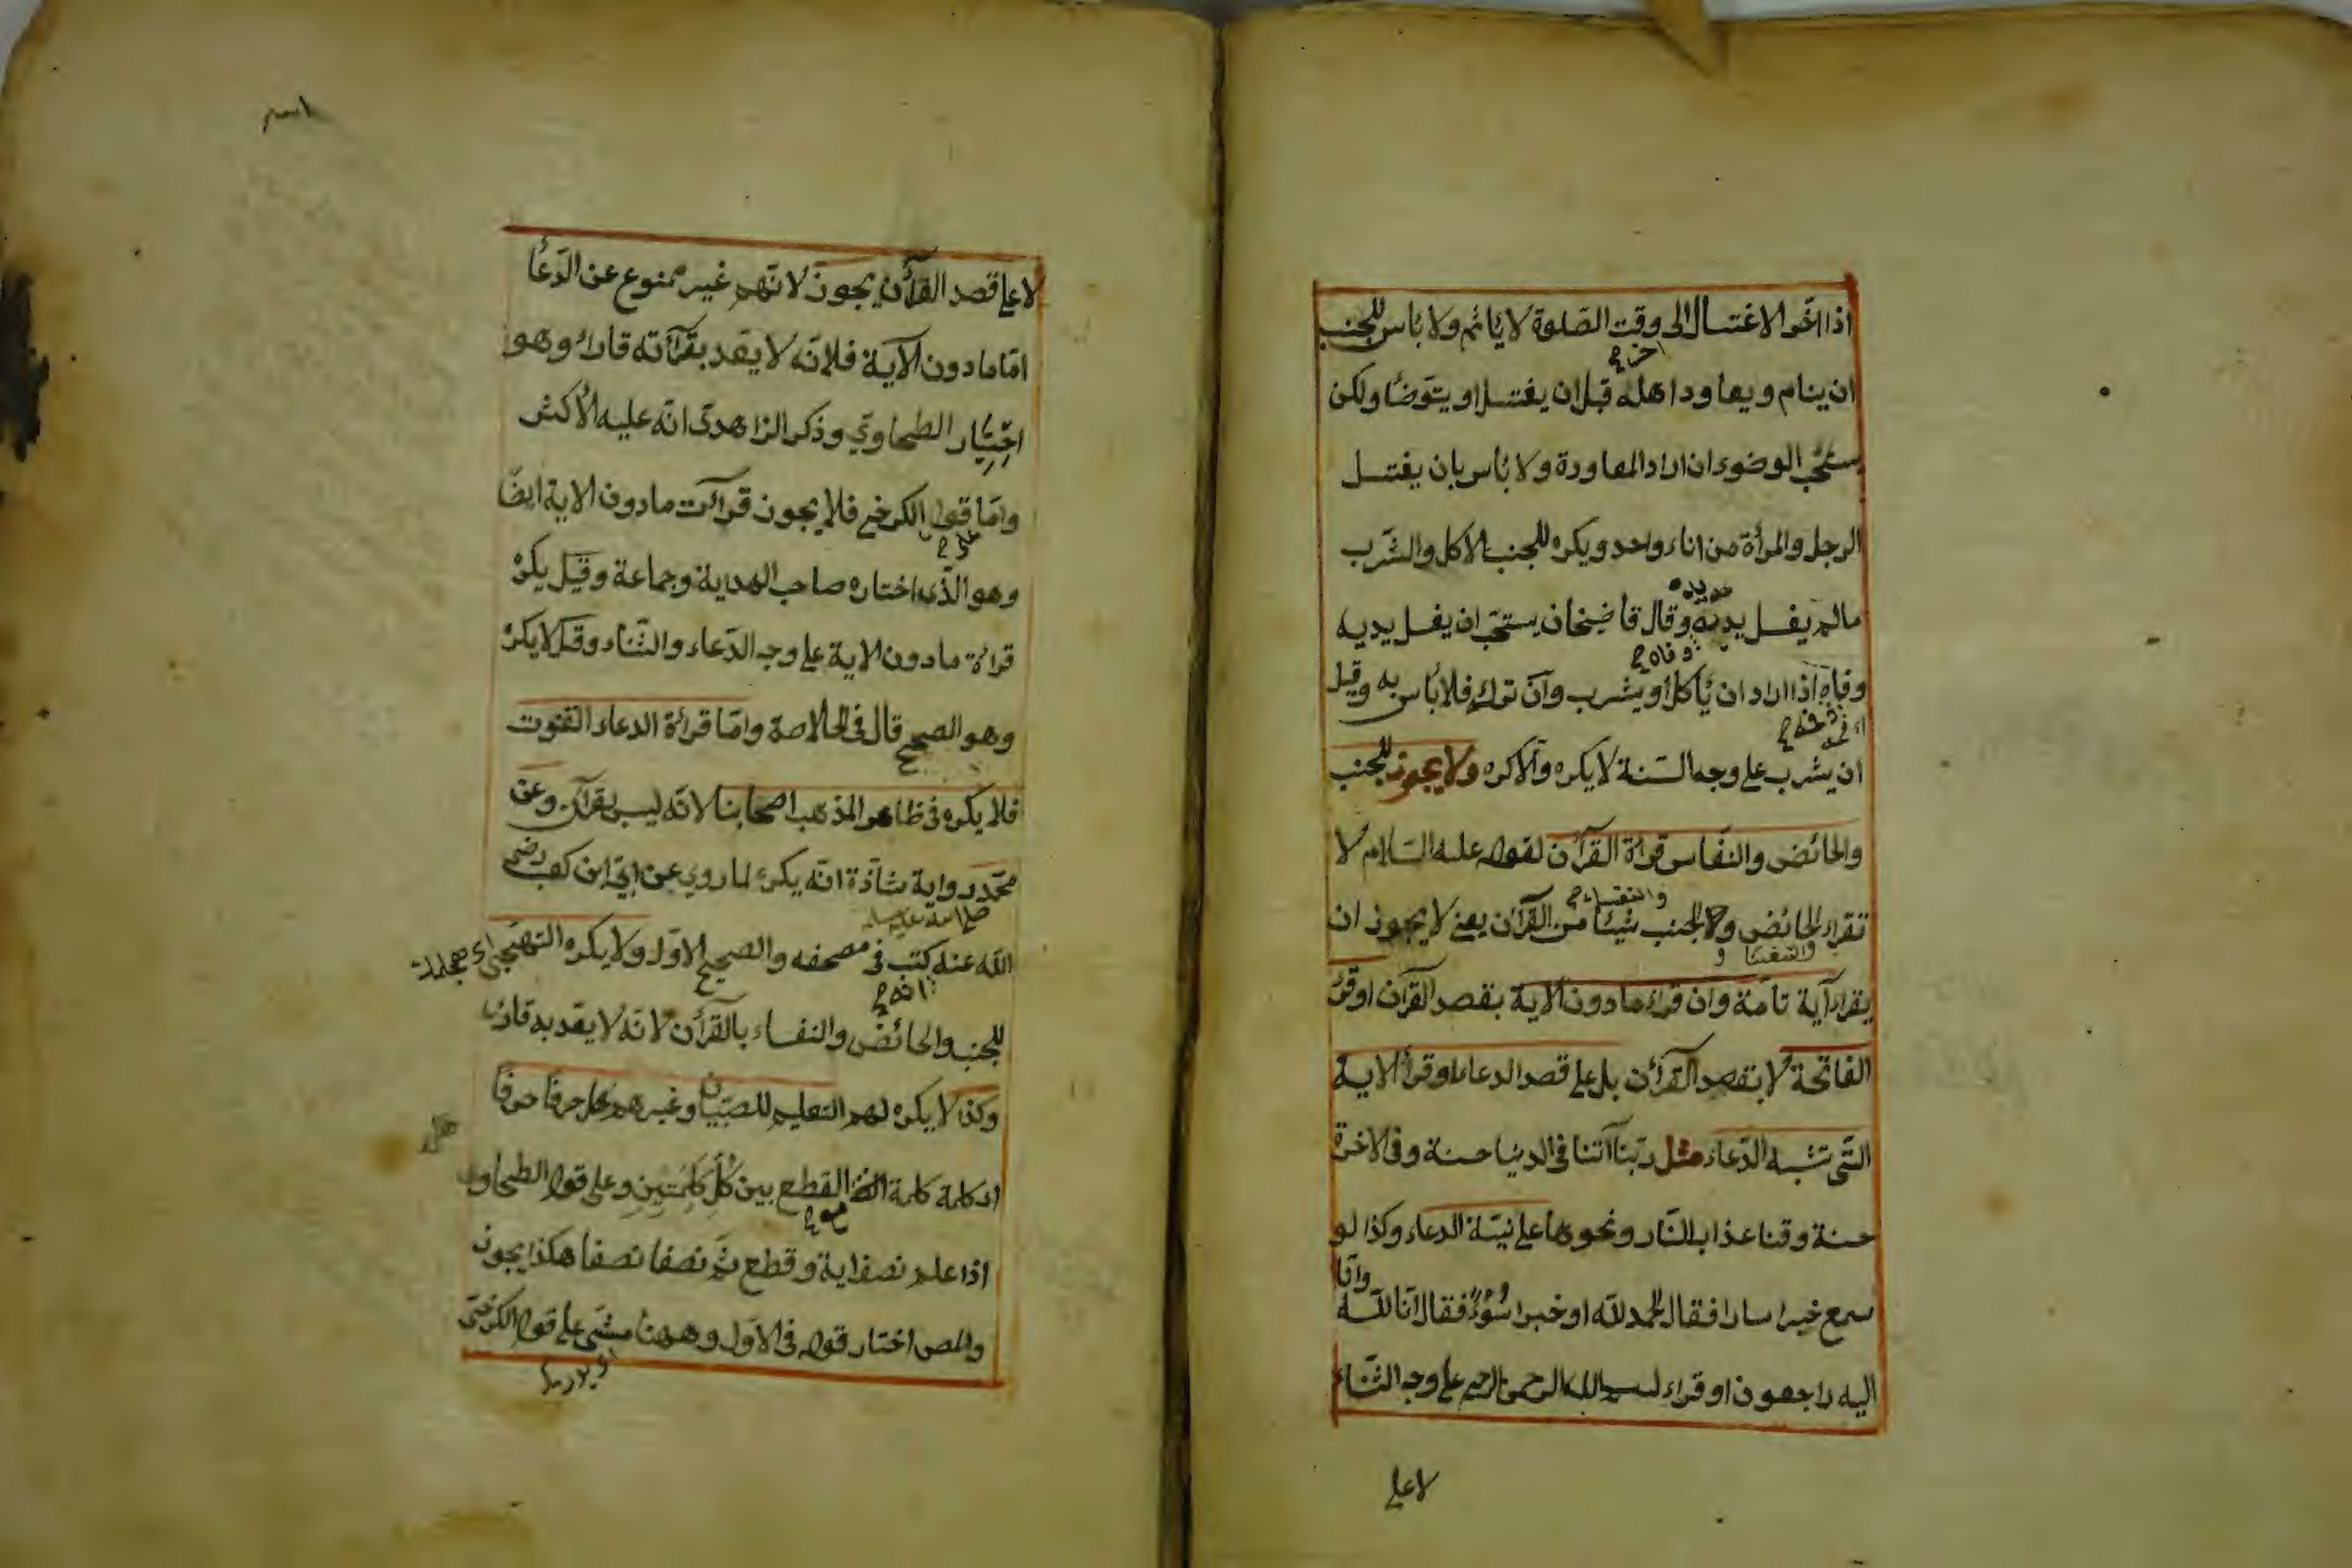 اذا اخّر الاغتسال الى وقت الصّلوة لا يأثم ولا بأس للجنب
ان ينام ويعاود اهله قبل ان يغتسل او يتوضّأ ولكن
يستحبّ الوضوء ان اراد المعاودة ولا بأس بان يغتسل
الرجل والمرأة من اناء واحد ويكره للجنب الاكل والشّرب
مالم يغسل يديه وقال قاضيخان يستحبّ ان يغسل يديه
وفاه اذا اراد ان يأكل او يشرب وان ترك فلا بأس به وقيل
ان يشرب على وجه السّنة لا يكره والا كره ولا يجوز للجنب
والحائض والنفاس قراة القرآن لقوله عليه السّلام لا
والنفساء
تقراء الحائض ولا الجنب شيئا من القرآن يعني لا يجوز ان
يقراء آية تامّة وان قراء مادون الاية بقصد القرآن او قرئ
الفاتحة لا بقصد القرآن بل على قصد الدعاء او قرأ الاية
التّى تشبه الدّعاء مثل ربّنا آتنا فى الدنيا حسنة وفى الاخرة
حسنة وقنا عذاب النّار ونحوها على نيّة الدعاء وكذا لو
سمع خبرا سارا فقال الحمد لله او خبرا سوء فقال انا للّه وانّا
اليه راجعون او قراء بسم الله الرحمن الرحيم على وجه الثّناء
لا على
لا على قصد القرآن يجوز لانّهم غير ممنوع عن الدّعا
امّا مادون الآية فلانّه لا يعد بقرآته قارئ وهو
اختيار الطحاوي وذكر الزاهدى انّه عليه الاكثر
وامّا قول الكرخى فلا يجوز قرآت مادون الاية ايضا
وهو الذّى اختاره صاحب الهدية وجماعة وقيل يكره
قراة مادون الاية على وجه الدّعاء والثّناء وقيل لا يكره
وهو الصحيح قال فى الخلاصة وامّا قراة الدعاء القنوت
فلا يكره فى ظاهر المذهب اصحابنا لانّه ليس بقرآن وعن
محمّد رواية شاذة انّه يكره لما روي عن ابىّ ابن كعب رضى
الله عنه كتب فى مصحفه والصحيح الاوّل ولا يكره التهجّى
للجنب والحائض والنفساء بالقرآن لانّه لا يعد به قارئا
وكذا لا يكره لهم التعليم للصّبيان وغيرهم حرفا حرفا
اى كلمة كلمة القطع بين كلّ كلمتين وعلى قول الطحاوى
اذا علم نصف اية وقطع ثمّ نصفا نصفا هكذا يجوز
والمص اختار قوله فى الاوّل وههنا مشى على قول الكرخىّ